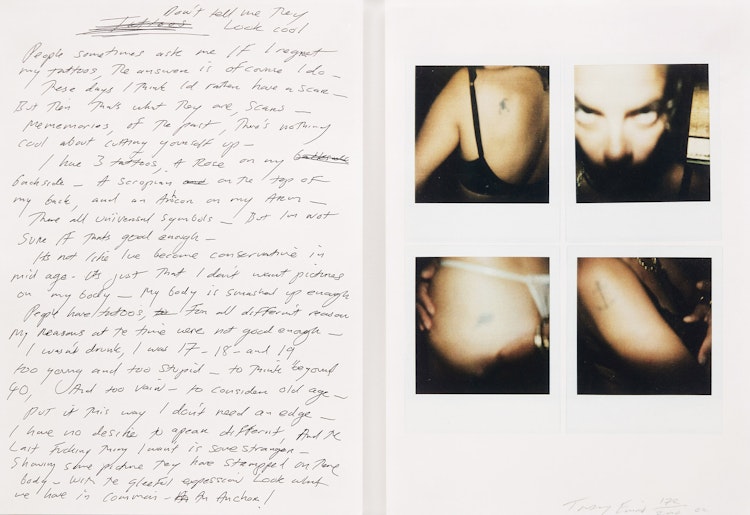 Don't tell me They
Tattoos Look cool
People sometimes ask me If I regret
my tattoos, The answer is of course I do _
These days I think I'd rather have a scar _
But Then Thats what They are, Scars _
Mememories, of The past, There's nothing
cool about cutting yourself up _
I have 3 tattoos, A Rose on my
backside _ A scropian and on the top of
my back, and an Ancon on my Arm _
There all Universal Symbols _ But Im not
Sure If thats good enough _
Its not like Ive become conservative in
mid age _ Its just That I dont want pictures
on my body _ My body is smashed up enough
People have tattoos, For all different reason
My Reasons at te time were not good enough _
I wasn't drunk, I was 17 - 18 - and 19
too young and too stupid _ to think beyond
40, And too vain _ to consider old age _
PUT it This way I don't need an edge _
I have no desire to apear different, And the
Last Fucking Thing I want is some stranger _
Showing some picture They have stampped on There
body _ With te gleeful expression Look what
we have in common _ An Anchor!
Tracey Emin 172/200